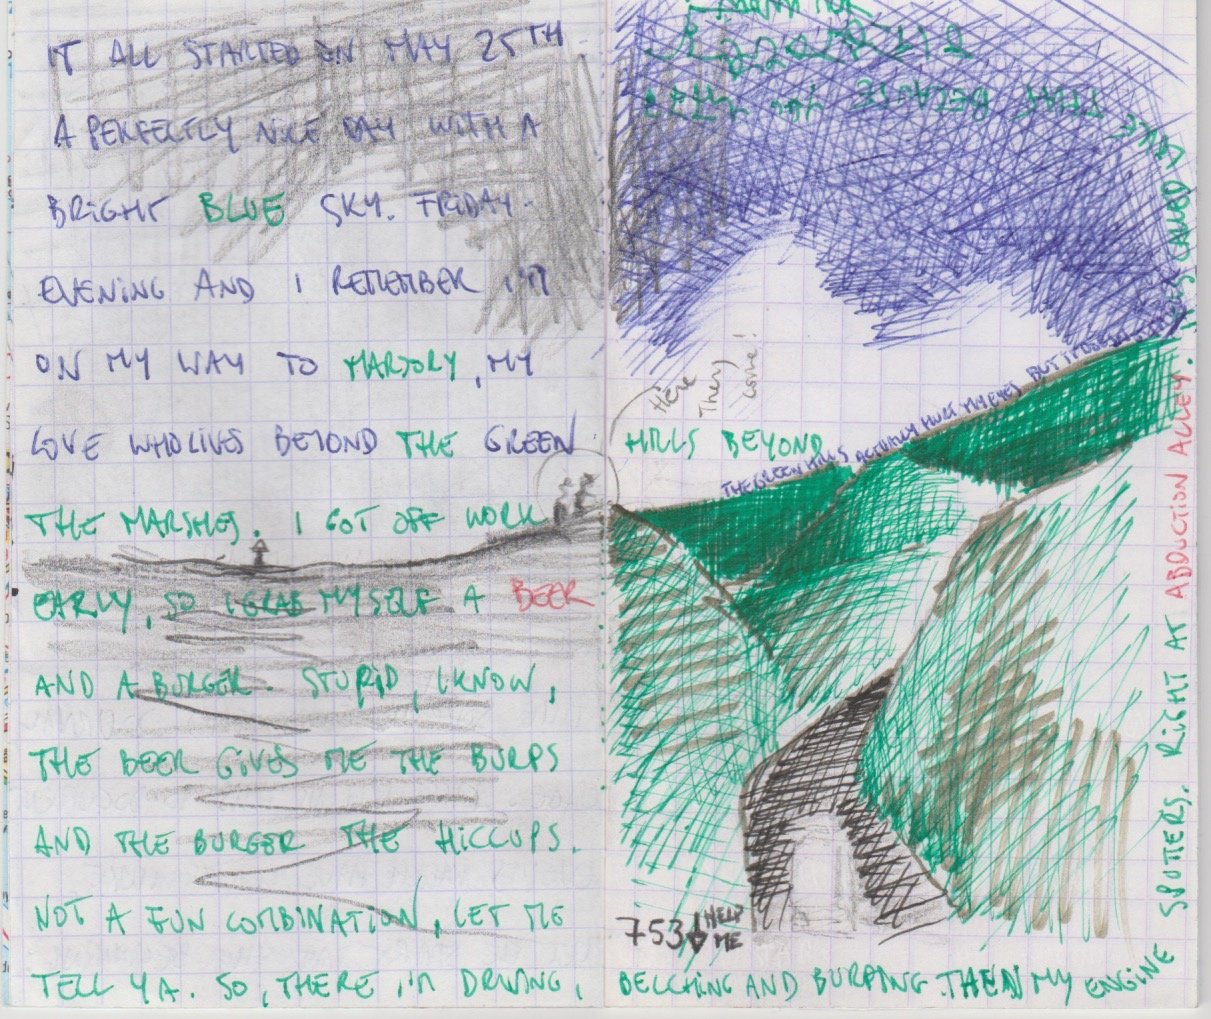 IT ALL STARTED ON MAY 25TH
A PERFECTLY NICE DAY WITH A
BRIGHT BLUE SKY. FRIDAY
EVENING AND I REMEMBER I'M
ON MY WAY TO MARJORY, MY
LOVE WHO LIVES BEYOND THE GREEN
HILLS BEYOND
THE MARSHES. I GOT OFF WORK
EARLY, SO I GRAB MYSELF A BEER
AND A BURGER. STUPID, I KNOW,
THE BEER GIVES ME THE BURPS
AND THE BURGER THE HICCUPS.
NOT A FUN COMBINATION, LET ME
TELL YA. SO, THERE I'M DRIVING,
BELCHING AND BURPING. THEN MY ENGINE
SPUTTERS. RIGHT AT ABDUCTION ALLEY. IT'S CALLED
LIKE THAT BECAUSE YOU
Here
They
come!
THE GREEN HILLS ACTUALLY HURT MY EYES BUT I
753
HELP
ME